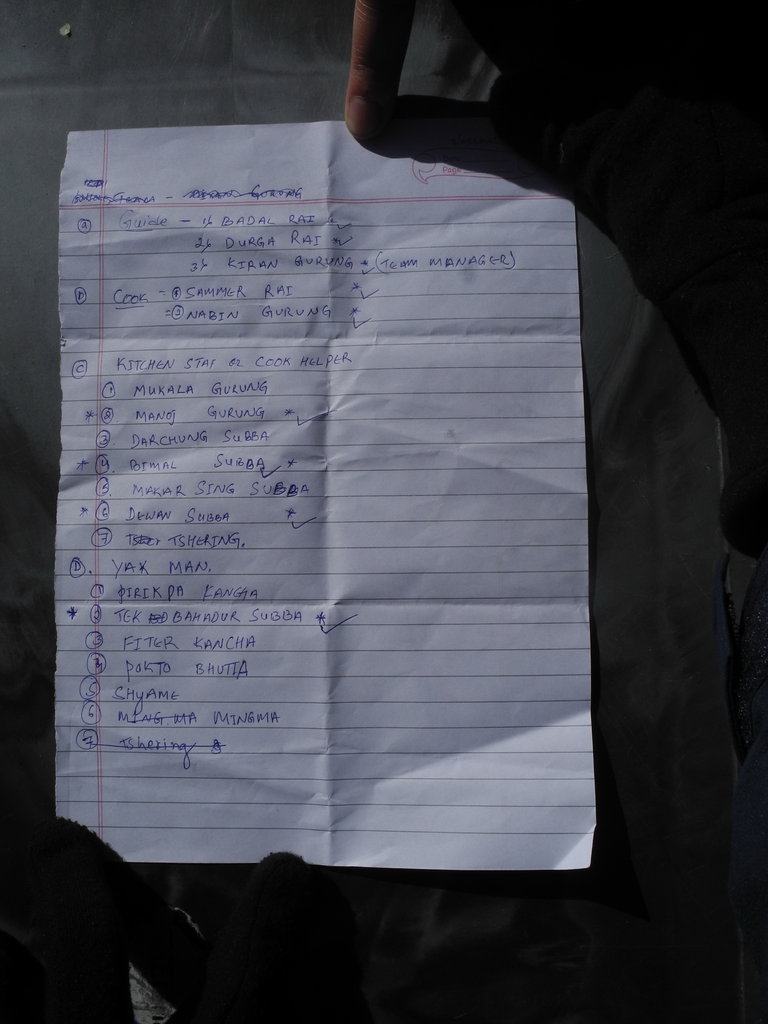 Page
Team - Kiran Gurung
(a) Guide - 1) BADAL RAI ✓
2) DURGA RAI * ✓
3) KIRAN GURUNG * ✓ (TEAM MANAGER)
(b) Cook - (1) SAMMER RAI * ✓
= (2) NABIN GURUNG * ✓
(C) KITCHEN STAF or COOK HELPER
(1) MUKALA GURUNG
* (2). MANOJ GURUNG * ✓
(3). DARCHUNG SUBBA
* (4). BIMAL SUBBA ✓ *
(5). MAKAR SING SUBBA
* (6) DEWAN SUBBA * ✓
(7) TSHERING.
(D). YAK MAN.
(1) PIRIKPA KANCHA
* (2) TEK BAHADUR SUBBA * ✓
(3) FITER KANCHA
(4) POKTO BHUTIA
(5) SHYAME
(6) MING MA MINGMA
(7) Tshering